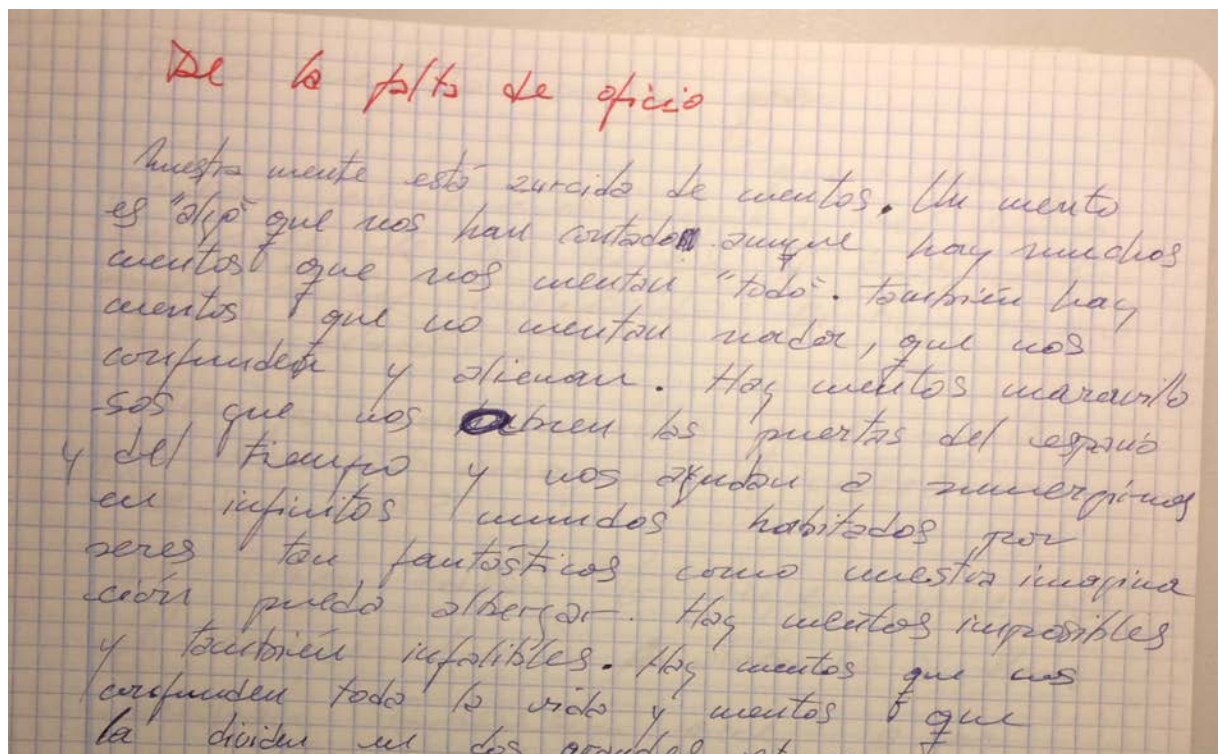 De la falta de oficio
Nuestra mente está zurcida de cuentos. Un cuento
es "algo" que nos han contado aunque hay muchos
cuentos que nos cuentan "todo". también hay
cuentos que no cuentan nada, que nos
confunden y alienan. Hay cuentos maravillo
sos que nos abren las puertas del espacio
y del tiempo y nos ayudan a sumergirnos
en infinitos mundos habitados por
seres tan fantásticos como nuestra imagina
ción pueda albergar. Hay cuentos imposibles
y también infalibles. Hay cuentos que nos
confunden toda la vida y cuentos que
la dividen en dos grandes